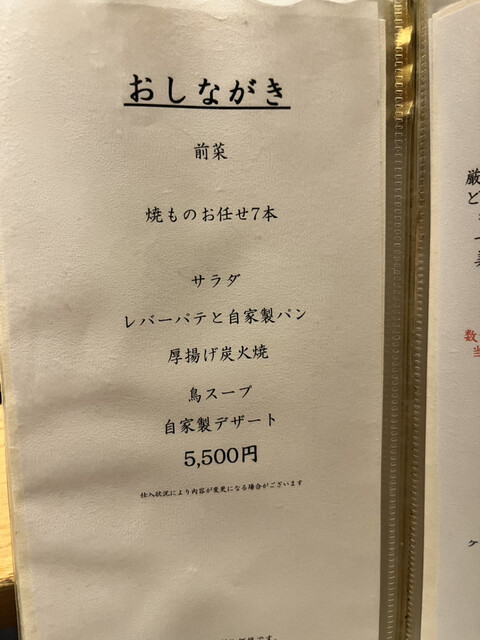 おしながき
前菜
焼ものお任せ7本
サラダ
レバーパテと自家製パン
厚揚げ炭火焼
鳥スープ
自家製デザート
5,500円
仕入状況により内容が変更になる場合がございます
です。
厳
ど
数
当